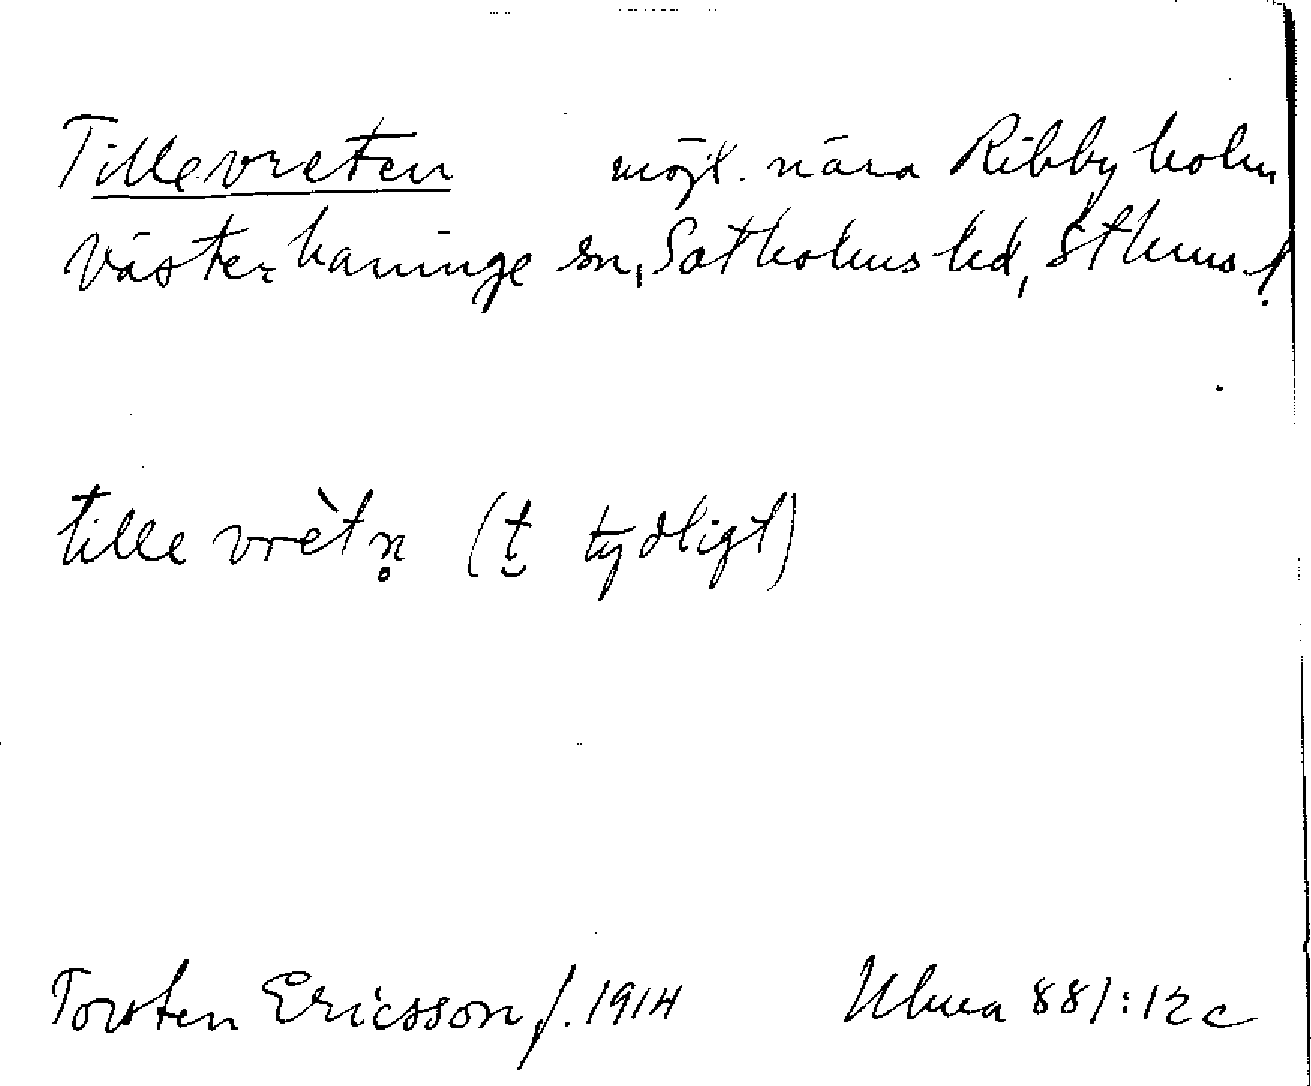 Tillevreten möjl. nära Ribbyholm
Västerhaninge sn, Sotholms hd, Sthms l.
tille vrètn̥ (t̯ tydligt)
Torsten Ericsson f. 1914 Ulma 881:12c